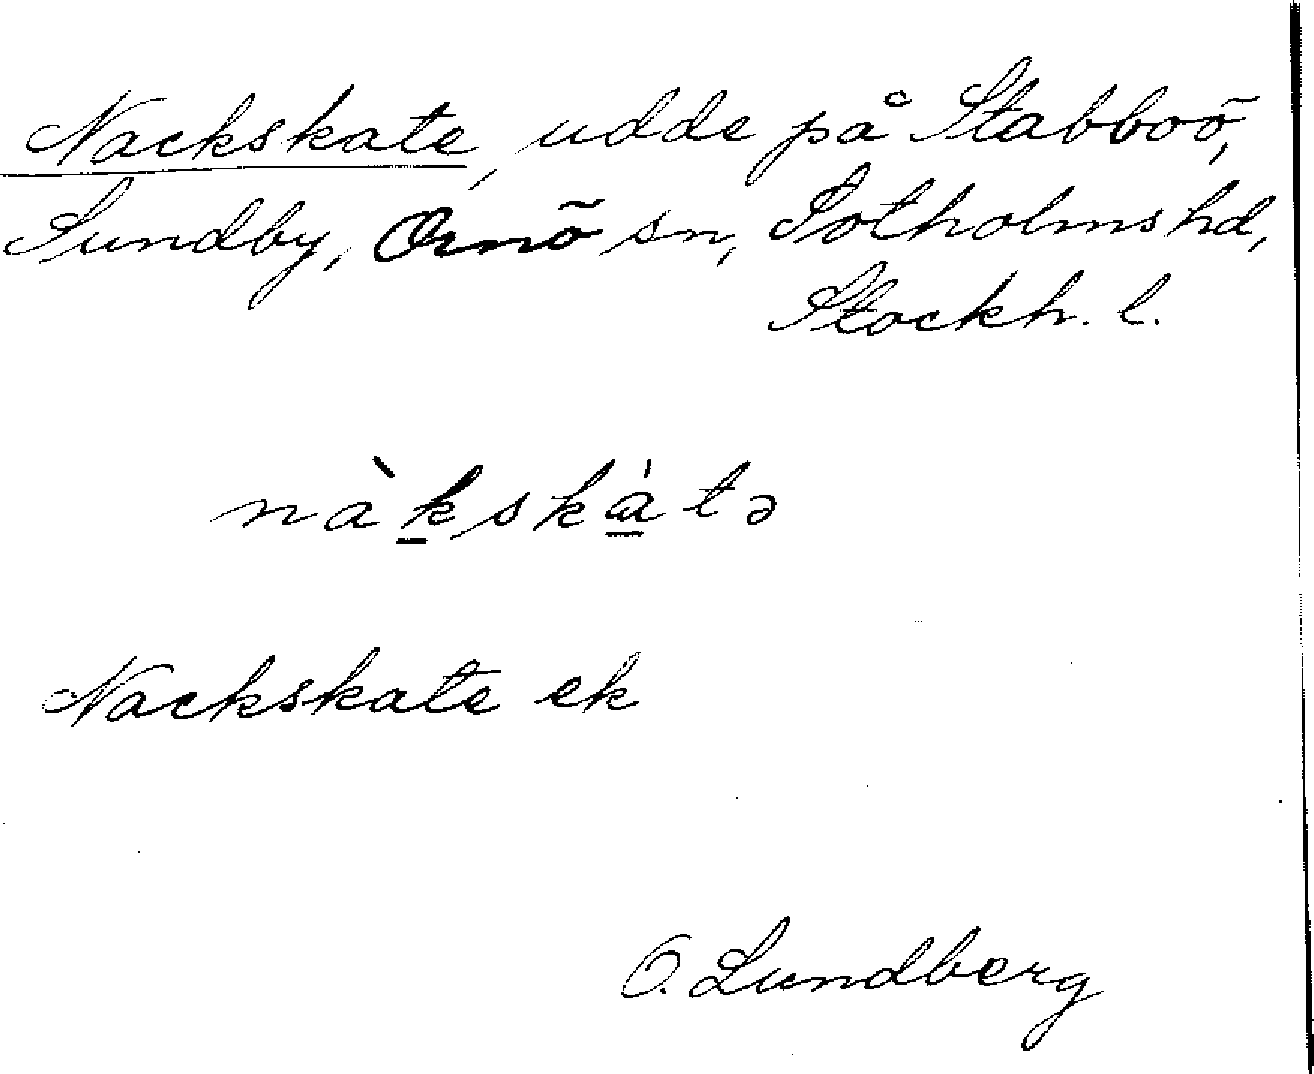 Nackskate, udde på Stabboö,
Sundby, Ornö sn, Sotholms hd,
Stockh. l.
nàkskátə
Nackskate ek
O. Lundberg